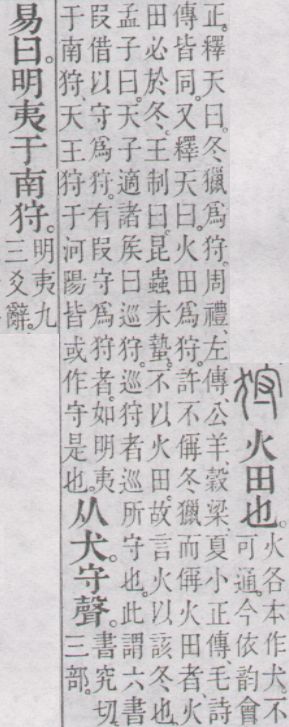 狩火田也。
火各本作犬。不
可通。今依韵會
正。釋天曰。冬獵爲狩。周禮、左傳、公羊、穀梁、夏小正傳、毛詩
傳皆同。又釋天曰。火田爲狩。許不偁冬獵而偁火田者、火
田必於冬。王制曰。昆蟲未蟄。不以火田。故言火以該冬也。
孟子曰。天子適諸矦曰巡狩。巡狩者巡所守也。此謂六書
叚借以守爲狩。有叚守爲狩者。如明夷
于南狩天王狩于河陽皆或作守是也。
从犬。守聲。
書究切。
三部。
易曰。明夷于南狩。
明夷九
三爻辭。